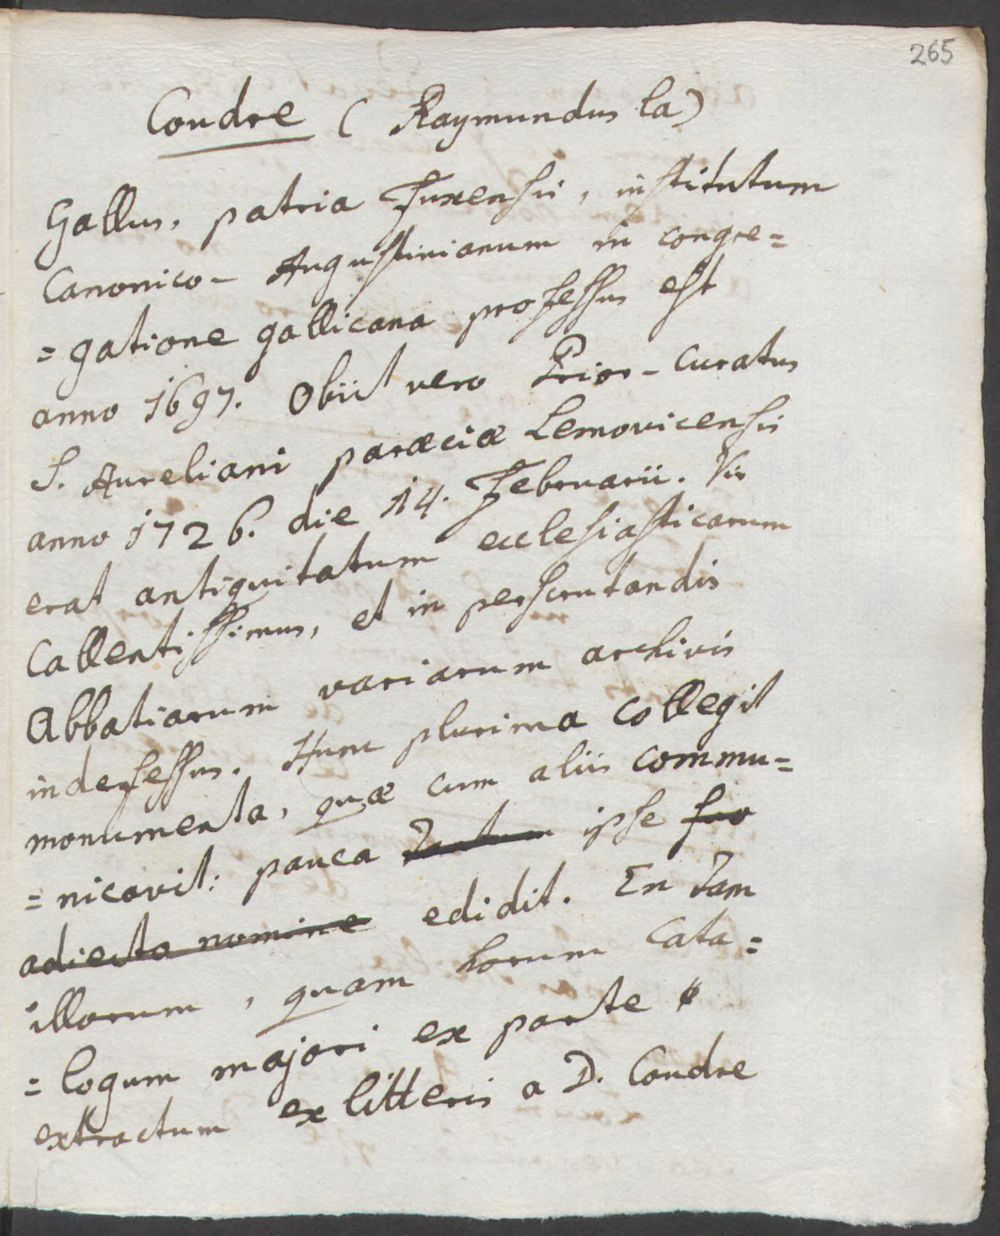 265
Condre ( Raymundus la)
Gallus, patria Fuxensis, institutum
Canonico- Augustinianum in congre=
=gatione gallicana professus est
anno 1697. Obiit vero Prior-Curatus
S. Aureliani parœciæ Lemovicensis
anno 1726. die 14. Februarii. Vir
erat antiquitatum ecclesiasticarum
Callentissimus, et in perscrutandis
Abbatiarum variarum archivis
indefessus. Hinc plurima collegit
monumenta, quæ cum aliis commu=
=nicavit: pauca tantum ipse suo
adiecto nomine edidit. En Tam
illorum, quam horum Cata=
=logum majori ex parte
extractum ex litteris a D. Condre